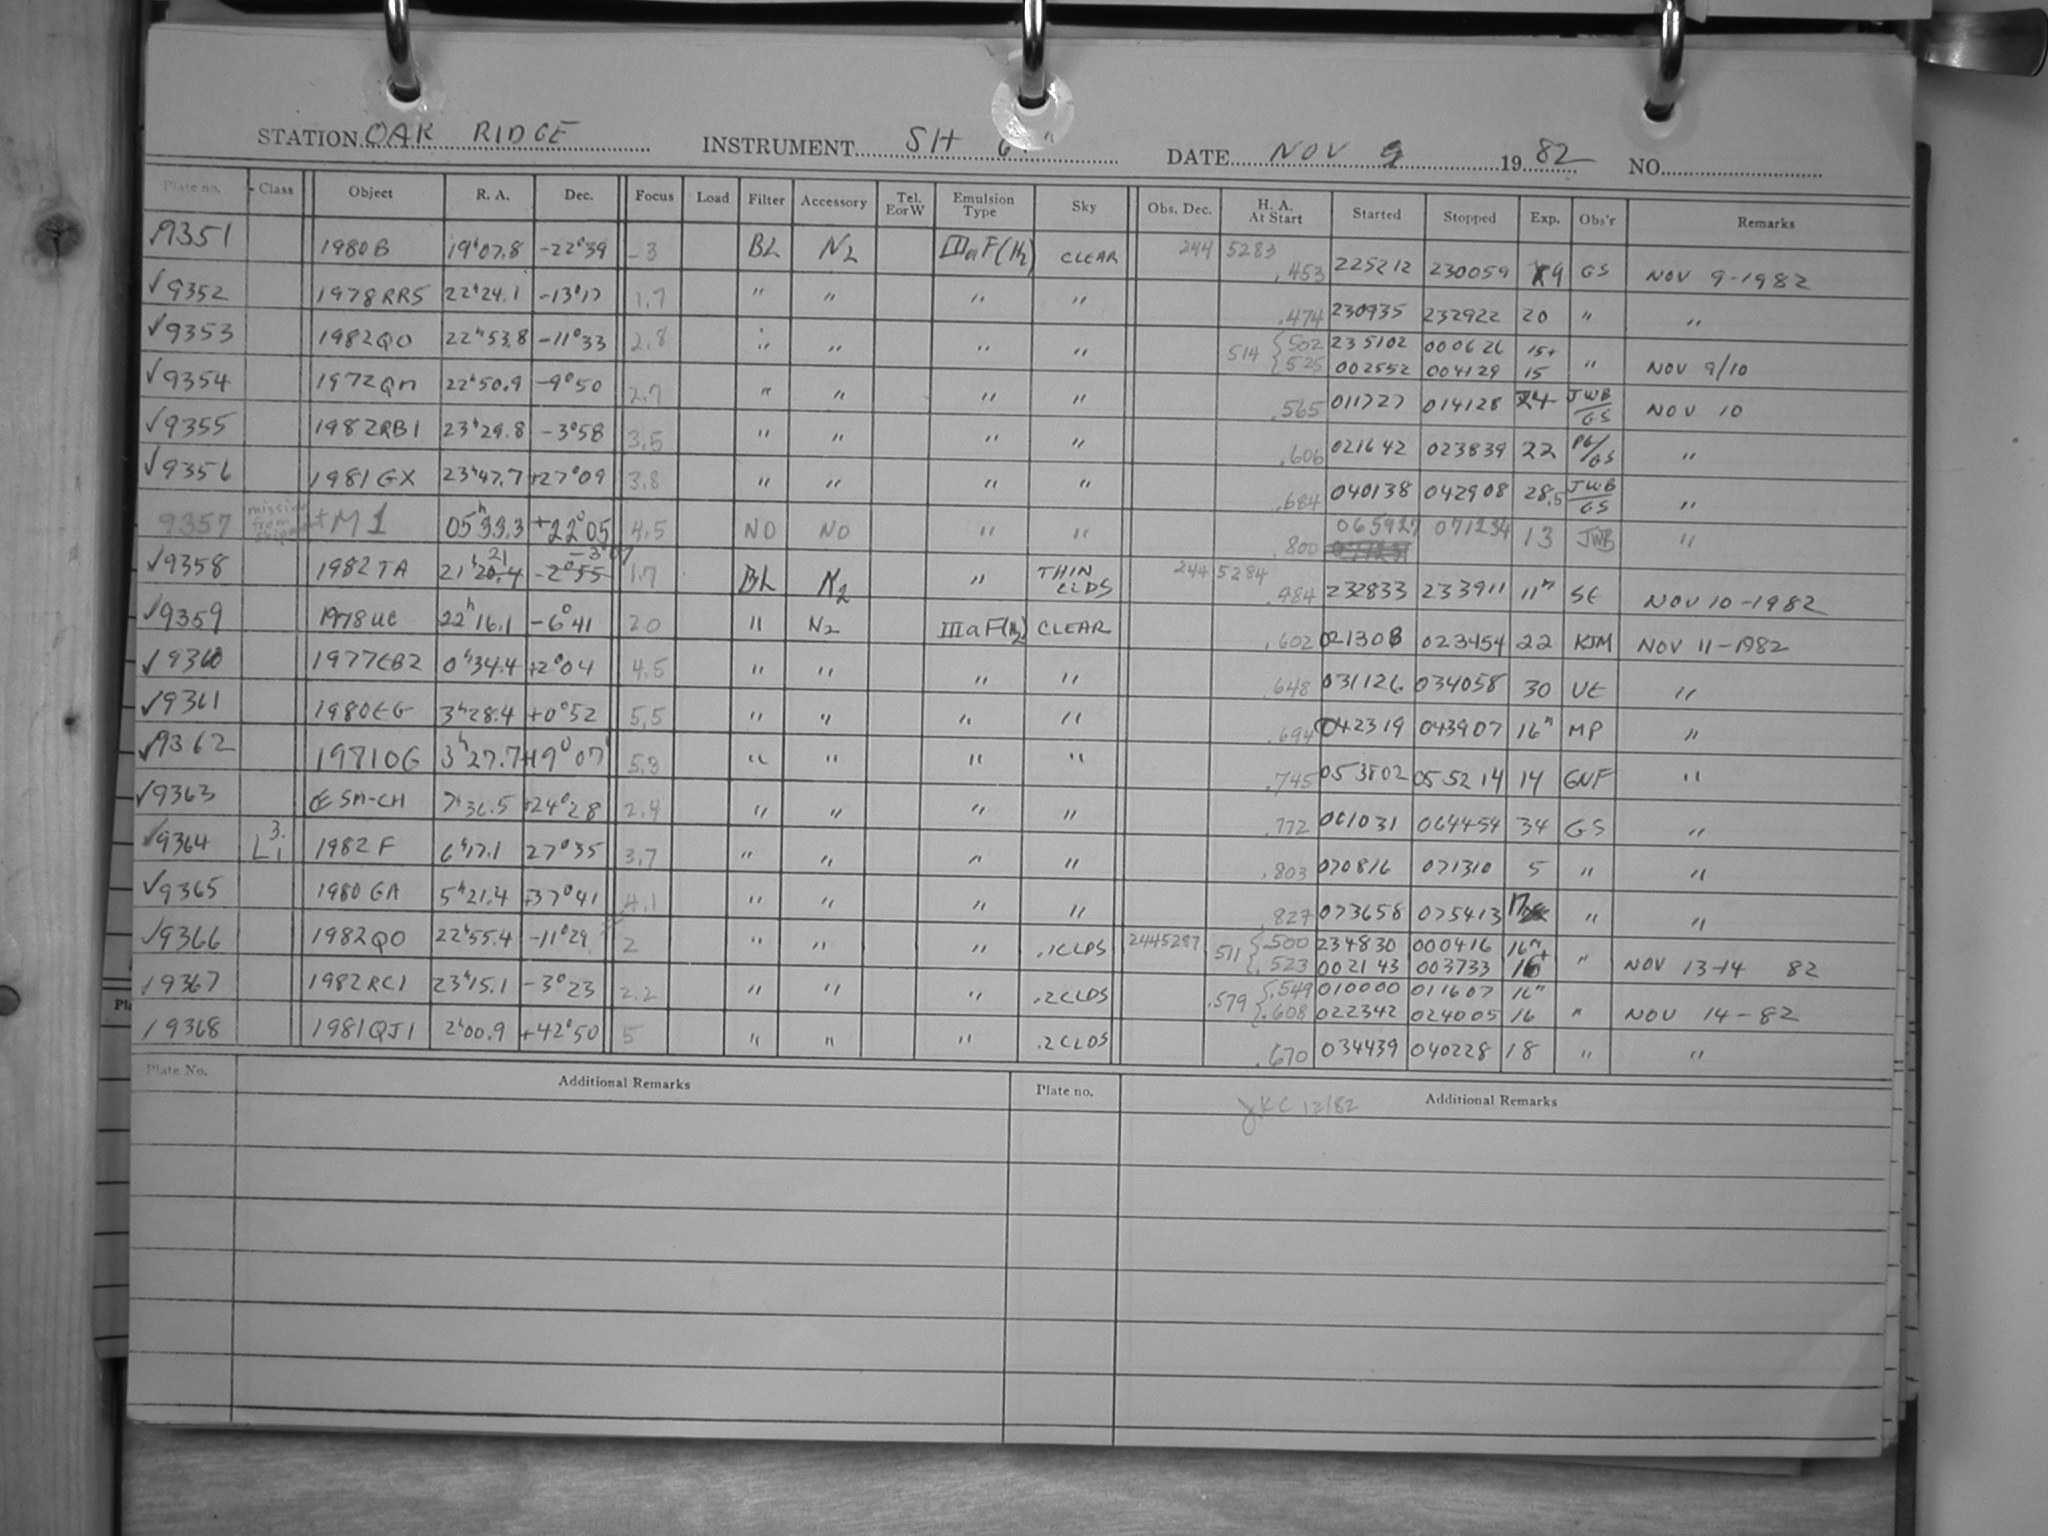 STATION OAK RIDGE INSTRUMENT SH DATE NOV 9 19 82 NO.
Plate no. Class Object R. A. Dec. Focus Load Filter Accessory Tel. E or W Emulsion Type Sky Obs. Dec. H. A. At Start Started Stopped Exp. Obs'r Remarks
9351 1980B 19h07.8 -22°39 -3 BL N2 IIIaF(N2) CLEAR 244 5283 .453 225212 230059 9 GS NOV 9-1982
✓9352 1978RR5 22h24.1 -13°17 1.7 " " " " .474 230935 232922 20 " "
✓9353 1982QO 22h53.8 -11°33 2.8 " " " " 514 { .502 235102 000626 15+ " NOV 9/10
.525 002552 004129 15
✓9354 1972QM 22h50.9 -9°50 2.7 " " " " .565 011727 014128 24 JWB/GS NOV 10
✓9355 1982RB1 23h29.8 -3°58 3.5 " " " " .606 021642 023839 22 PG/GS "
✓9356 1981GX 23h47.7 +27°09 3.8 " " " " .684 040138 042908 28.5 JWB/GS "
9357 missing from shipment M1 05h33.3 +22°05 4.5 NO NO " " .800 065927 071234 13 JWB "
✓9358 1982TA 21h20.4 21 -2°55 -3°07 1.7 BL N2 " THIN CLDS 244 5284 .484 232833 233911 11m SE NOV 10-1982
✓9359 1978UC 22h16.1 -6°41 20 " N2 IIIaF(N2) CLEAR .602 021308 023454 22 KJM NOV 11-1982
✓9360 1977EB2 0h34.4 +2°04 4.5 " " " " .648 031126 034058 30 UE "
✓9361 1980EG 3h28.4 +0°52 5.5 " " " " .694 042319 043907 16m MP "
✓9362 1971OG 3h27.7 +19°07' 5.3 " " " " .745 053802 055214 14 GNF "
✓9363 SM-CH 7h36.5 +24°28 2.4 " " " " .772 061031 064454 34 GS "
✓9364 L 3. 1 1982F 6h17.1 27°35 3.7 " " " " .803 070816 071310 5 " "
✓9365 1980GA 5h21.4 +37°41 4.1 " " " " .827 073658 075413 17 " "
✓9366 1982QO 22h55.4 -11°29 2 " " " .1CLDS 2445287 511 { .500 234830 000416 16m " NOV 13-14 82
.523 002143 003733 16+
✓9367 1982RC1 23h15.1 -3°23 2.2 " " " .2CLDS .579 { .549 010000 011607 16m " NOV 14-82
.608 022342 024005 16
✓9368 1981QJ1 2h00.9 +42°50 5 " " " .2CLDS .670 034439 040228 18 " "
Plate No. Additional Remarks Plate no. Additional Remarks
JKC 12/82